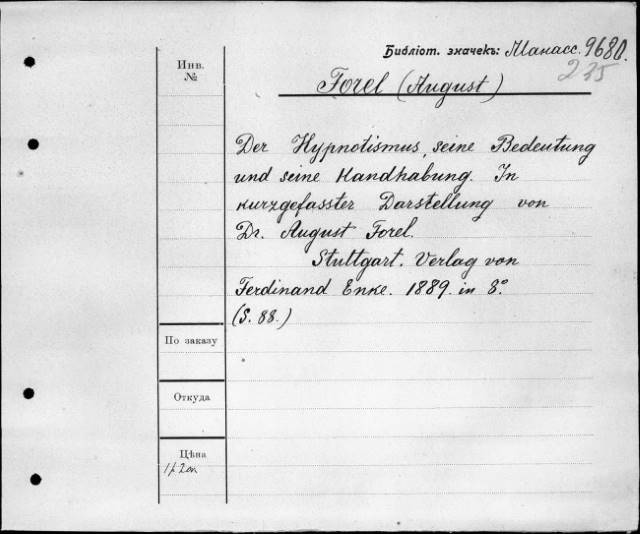 Библіот. значекъ: Манасс. 9680.
235
Инв.
№
Forel (August)
Der Hypnotismus, seine Bedeutung
und seine Handhabung. In
kurzgefasster Darstellung von
Dr. August Forel.
Stuttgart. Verlag von
Ferdinand Enke. 1889. in 8.º
(S. 88.)
По заказу
Откуда
Цѣна